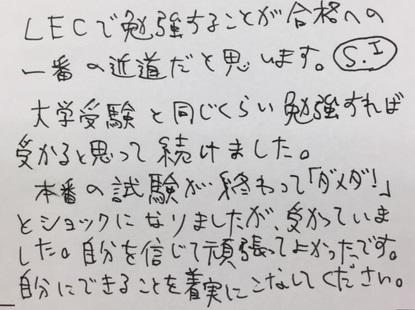 LECで勉強することが合格への
一番の近道だと思います。 S.I
大学受験と同じくらい勉強すれば
受かると思って続けました。
本番の試験が終わって「ダメダ!」
とショックになりましたが、受かっていま
した。自分を信じて頑張ってよかったです。
自分にできることを着実にこなしてください。